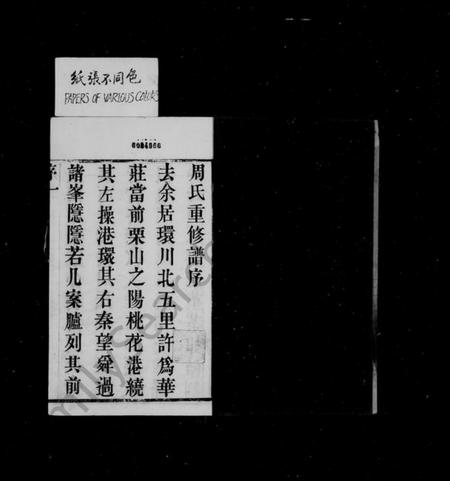 紙張不同色
PAPERS OF VARIOUS COLORS
周氏重修譜序
去余居環川北五里許爲華
莊當前栗山之陽桃花港繞
其左操港環其右秦望舜過
諸峯隱隱若几案臚列其前
序一